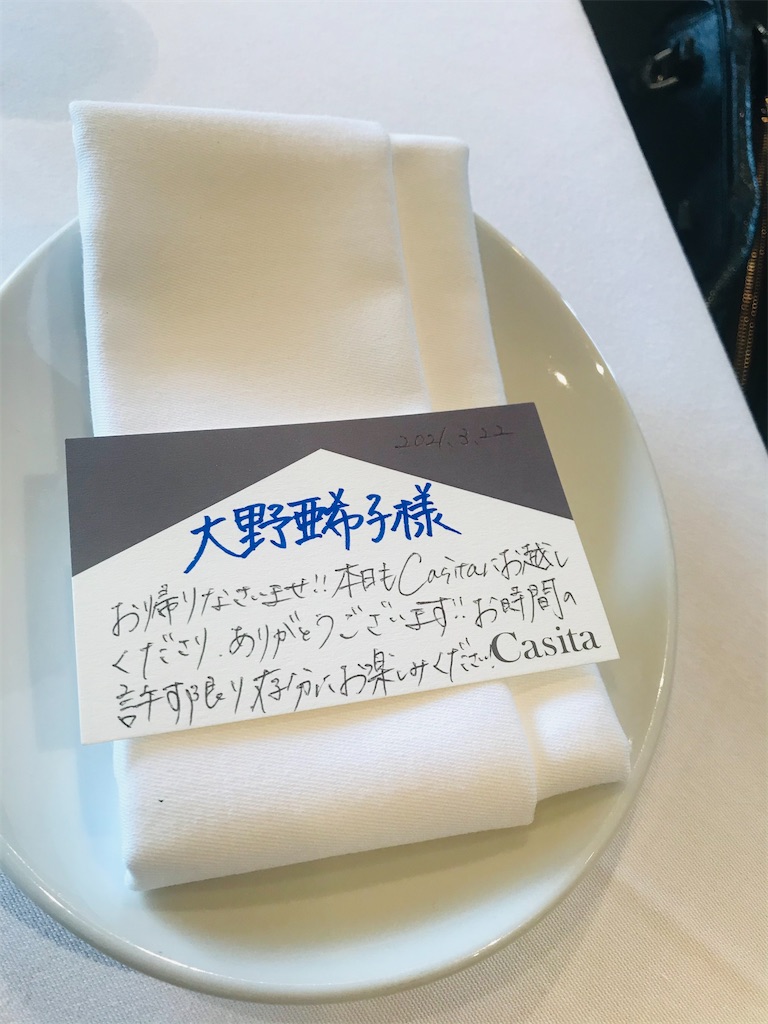 2021.3.22
大野亜希子様
お帰りなさいませ!!本日もCasitaにお越し
くださり、ありがとうございます!!お時間の
許す限り存分にお楽しみください
Casita